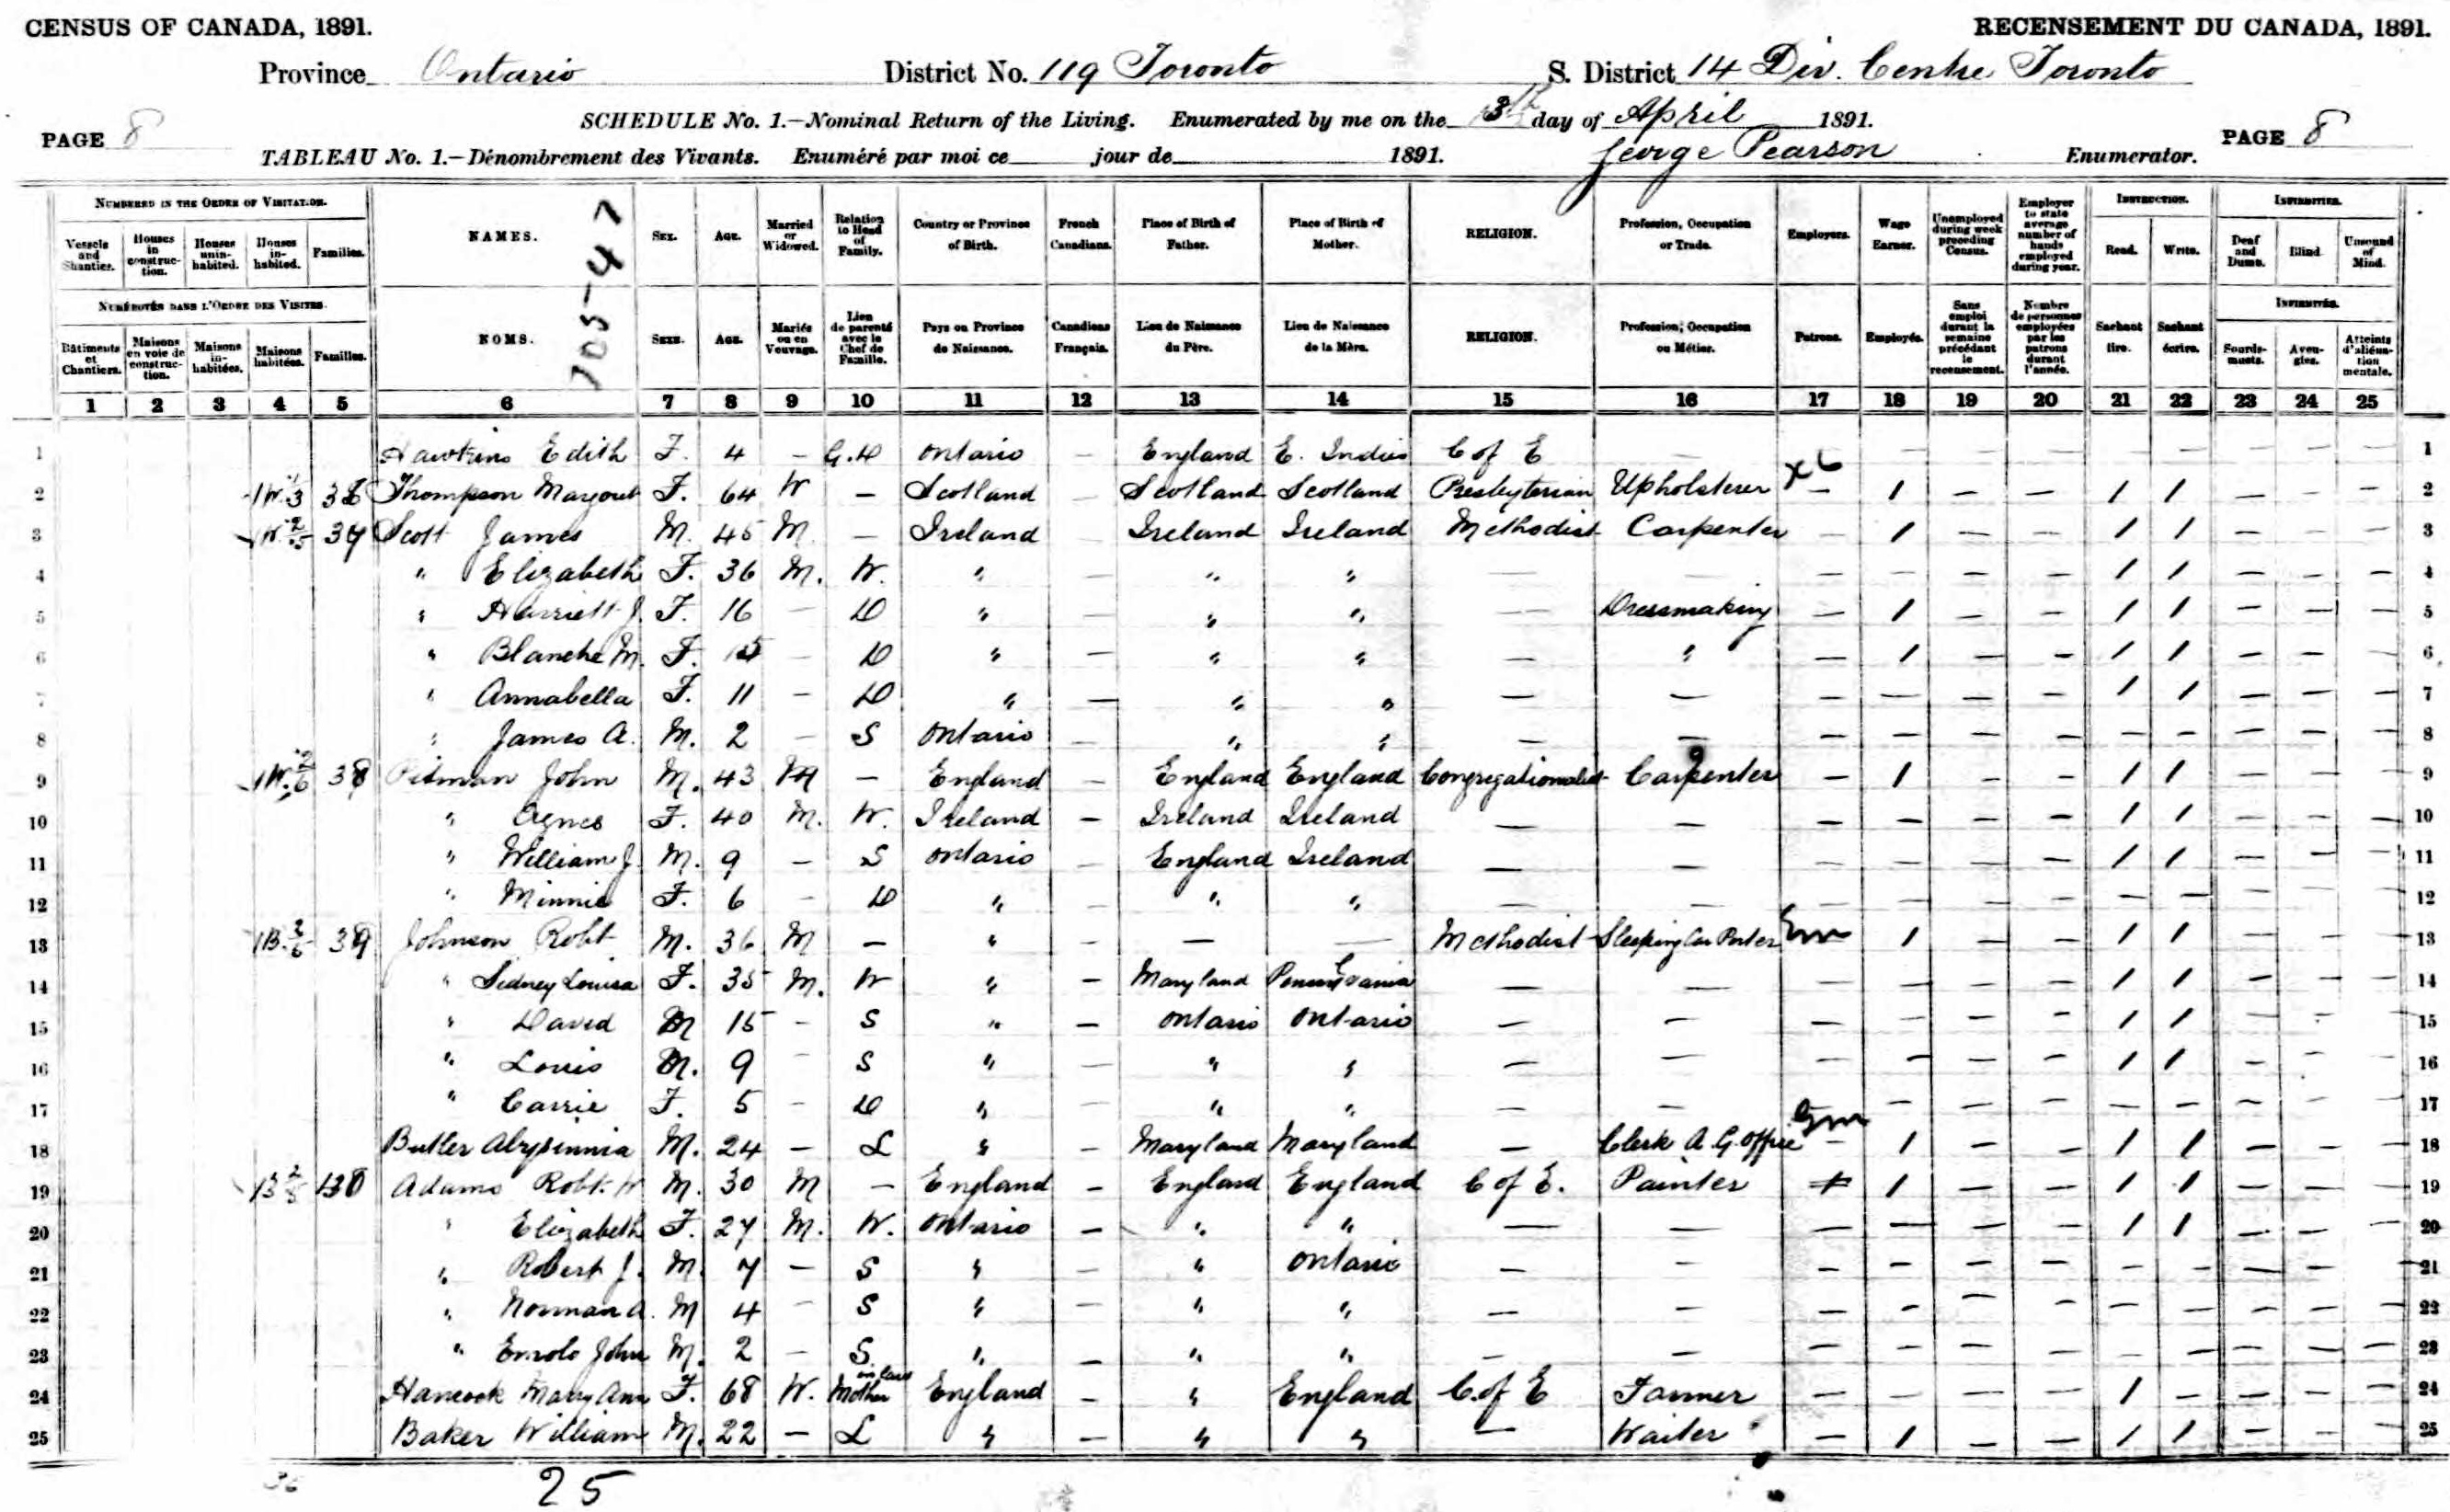 CENSUS OF CANADA, 1891. RECENSEMENT DU CANADA, 1891.
Province Ontario District No. 119 Toronto S. District 14 Div. Centre Toronto
SCHEDULE No. 1.—Nominal Return of the Living. Enumerated by me on the day of April 1891.
PAGE 8 PAGE 8
TABLEAU No. 1.—Dénombrement des Vivants. Enuméré par moi ce jour de 1891. George Pearson Enumerator.
NUMBERED IN THE ORDER OF VISITATION. NAMES. SEX. AGE. Married or Widowed. Relation to Head of Family. Country or Province of Birth. French Canadians. Place of Birth of Father. Place of Birth of Mother. RELIGION. Profession, Occupation or Trade. Employers. Wage Earner. Unemployed during week preceding Census. Employer to state average number of hands employed during year. INSTRUCTION. INFIRMITIES.
Vessels and Shanties. Houses in construction. Houses uninhabited. Houses inhabited. Families. Read. Write. Deaf and Dumb. Blind. Unsound of Mind.
705-47
NUMÉROTÉS DANS L'ORDRE DES VISITES. NOMS. SEXE. AGE. Mariés ou en Veuvage. Lien de parenté avec le Chef de Famille. Pays ou Province de Naissance. Canadiens Français. Lieu de Naissance du Père. Lieu de Naissance de la Mère. RELIGION. Profession, Occupation ou Métier. Patrons. Employés. Sans emploi durant la semaine précédant le recensement. Nombre de personnes employées par les patrons durant l'année. INFIRMITÉS.
Bâtiments et Chantiers. Maisons en voie de construction. Maisons inhabitées. Maisons habitées. Familles. Sachant lire. Sachant écrire. Sourds-muets. Aveugles. Atteints d'aliénation mentale.
1 2 3 4 5 6 7 8 9 10 11 12 13 14 15 16 17 18 19 20 21 22 23 24 25
1 Hawkins Edith F. 4 — G.D Ontario — England E. Indies C of E — — — — — — — — — — 1
2 Thompson Margaret F. 64 W — Scotland — Scotland Scotland Presbyterian Upholsterer — 1 — — 1 1 — — — 2
3 Scott James M. 45 M. — Ireland — Ireland Ireland Methodist Carpenter — 1 — — 1 1 — — — 3
4 " Elizabeth F. 36 M. W. " — " " — — — — — — 1 1 — — — 4
5 " Harriett J. F. 16 — D " — " " — Dressmaking — 1 — — 1 1 — — — 5
6 " Blanche M. F. — D " — " " — " — 1 — — 1 1 — — — 6
7 " Annabella F. 11 — D " — " " — — — — — — 1 1 — — — 7
8 " James A. M. 2 — S Ontario — " " — — — — — — — — — — — 8
9 38 Pitman John M. 43 M — England — England England Congregationalist Carpenter — 1 — — 1 1 — — — 9
10 " Agnes F. 40 M. W. Ireland — Ireland Ireland — — — — — — 1 1 — — — 10
11 " William J. M. 9 — S Ontario — England Ireland — — — — — — 1 1 — — — 11
12 " Minnie F. 6 — D " — " " — — — — — — — — — — — 12
13 39 Johnson Robt M. 36 M — " — — — Methodist Sleeping Car Porter — 1 — — 1 1 — — — 13
14 " Sidney Louisa F. 35 M. W " — Maryland Pennsylvania — — — — — — 1 1 — — — 14
15 " David M 15 — S " — Ontario Ontario — — — — — — 1 1 — — — 15
16 " Louis M. 9 — S " — " " — — — — — — 1 1 — — — 16
17 " Carrie F. 5 — D " — " " — — — — — — — — — — — 17
18 Butler Abyssinnia M. 24 — L " — Maryland Maryland — Clerk A. G. Office — 1 — — 1 1 — — — 18
19 Adams Robt. W M. 30 M — England — England England C of E. Painter 1 — — 1 1 — — — 19
20 " Elizabeth F. 27 M. W. Ontario — " " — — — — — — 1 1 — — — 20
21 " Robert J. M. 7 — S " — " Ontario — — — — — — — — — — — 21
22 " Norman A. M 4 — S " — " " — — — — — — — — — — — 22
23 " John M. 2 — S. " — " " — — — — — — — — — — — 23
24 Hancock Mary Ann F. 68 W. Mother in law England — " England C. of E Farmer — — — — 1 — — — — 24
25 Baker William M. 22 — L " — " " — Waiter — 1 — — 1 1 — — — 25
25